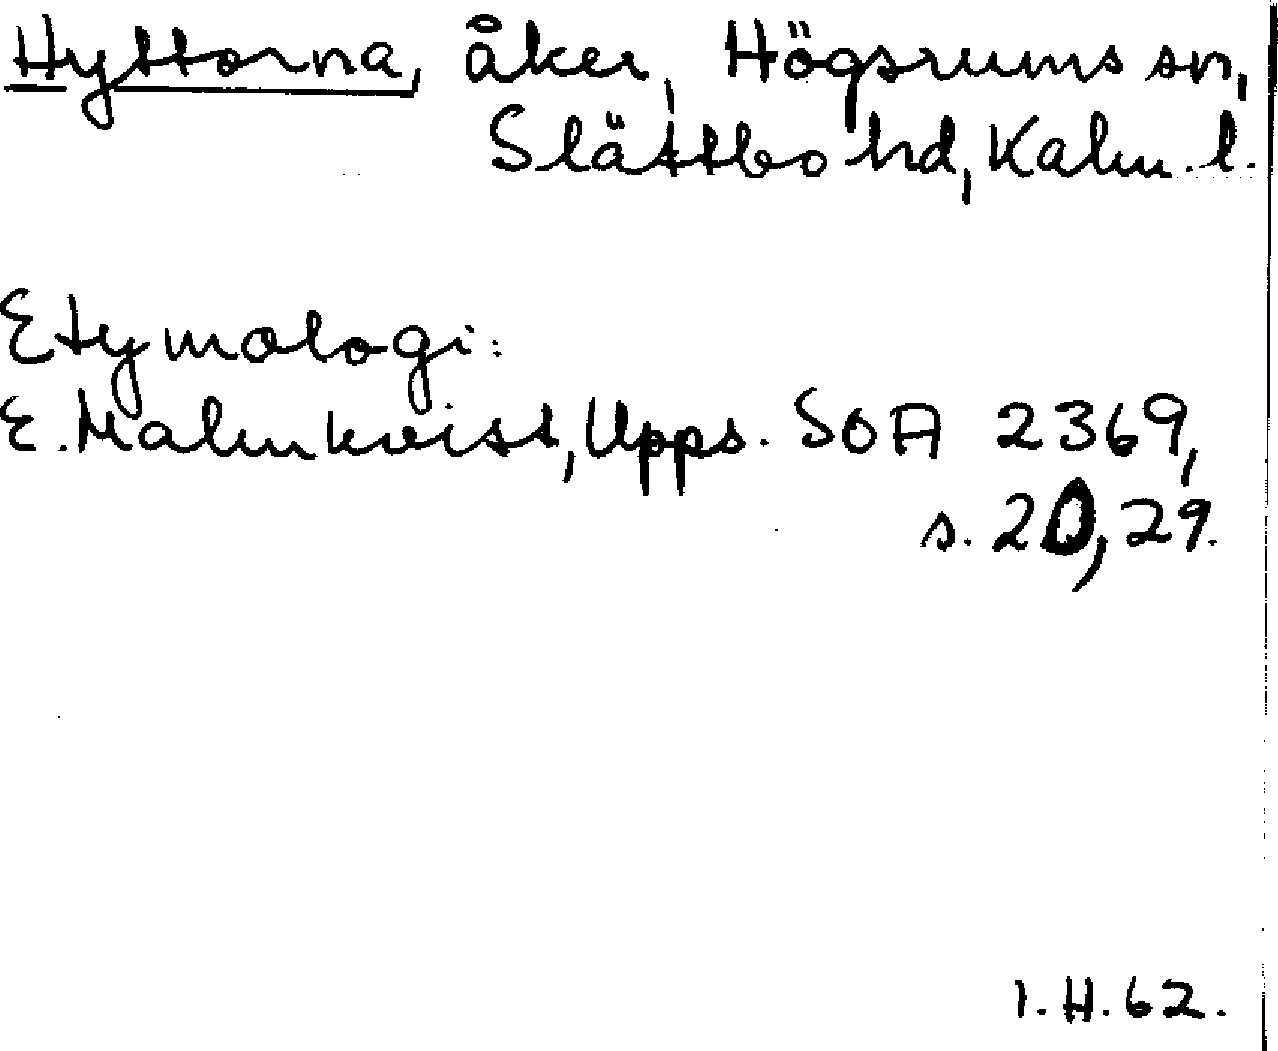 Hyttorna, åker, Högsrums sn,
Slättbo hd, Kalm. l.
Etymologi:
E. Malmkvist, Upps. SOA 2369,
s. 20, 29.
I.H.62.